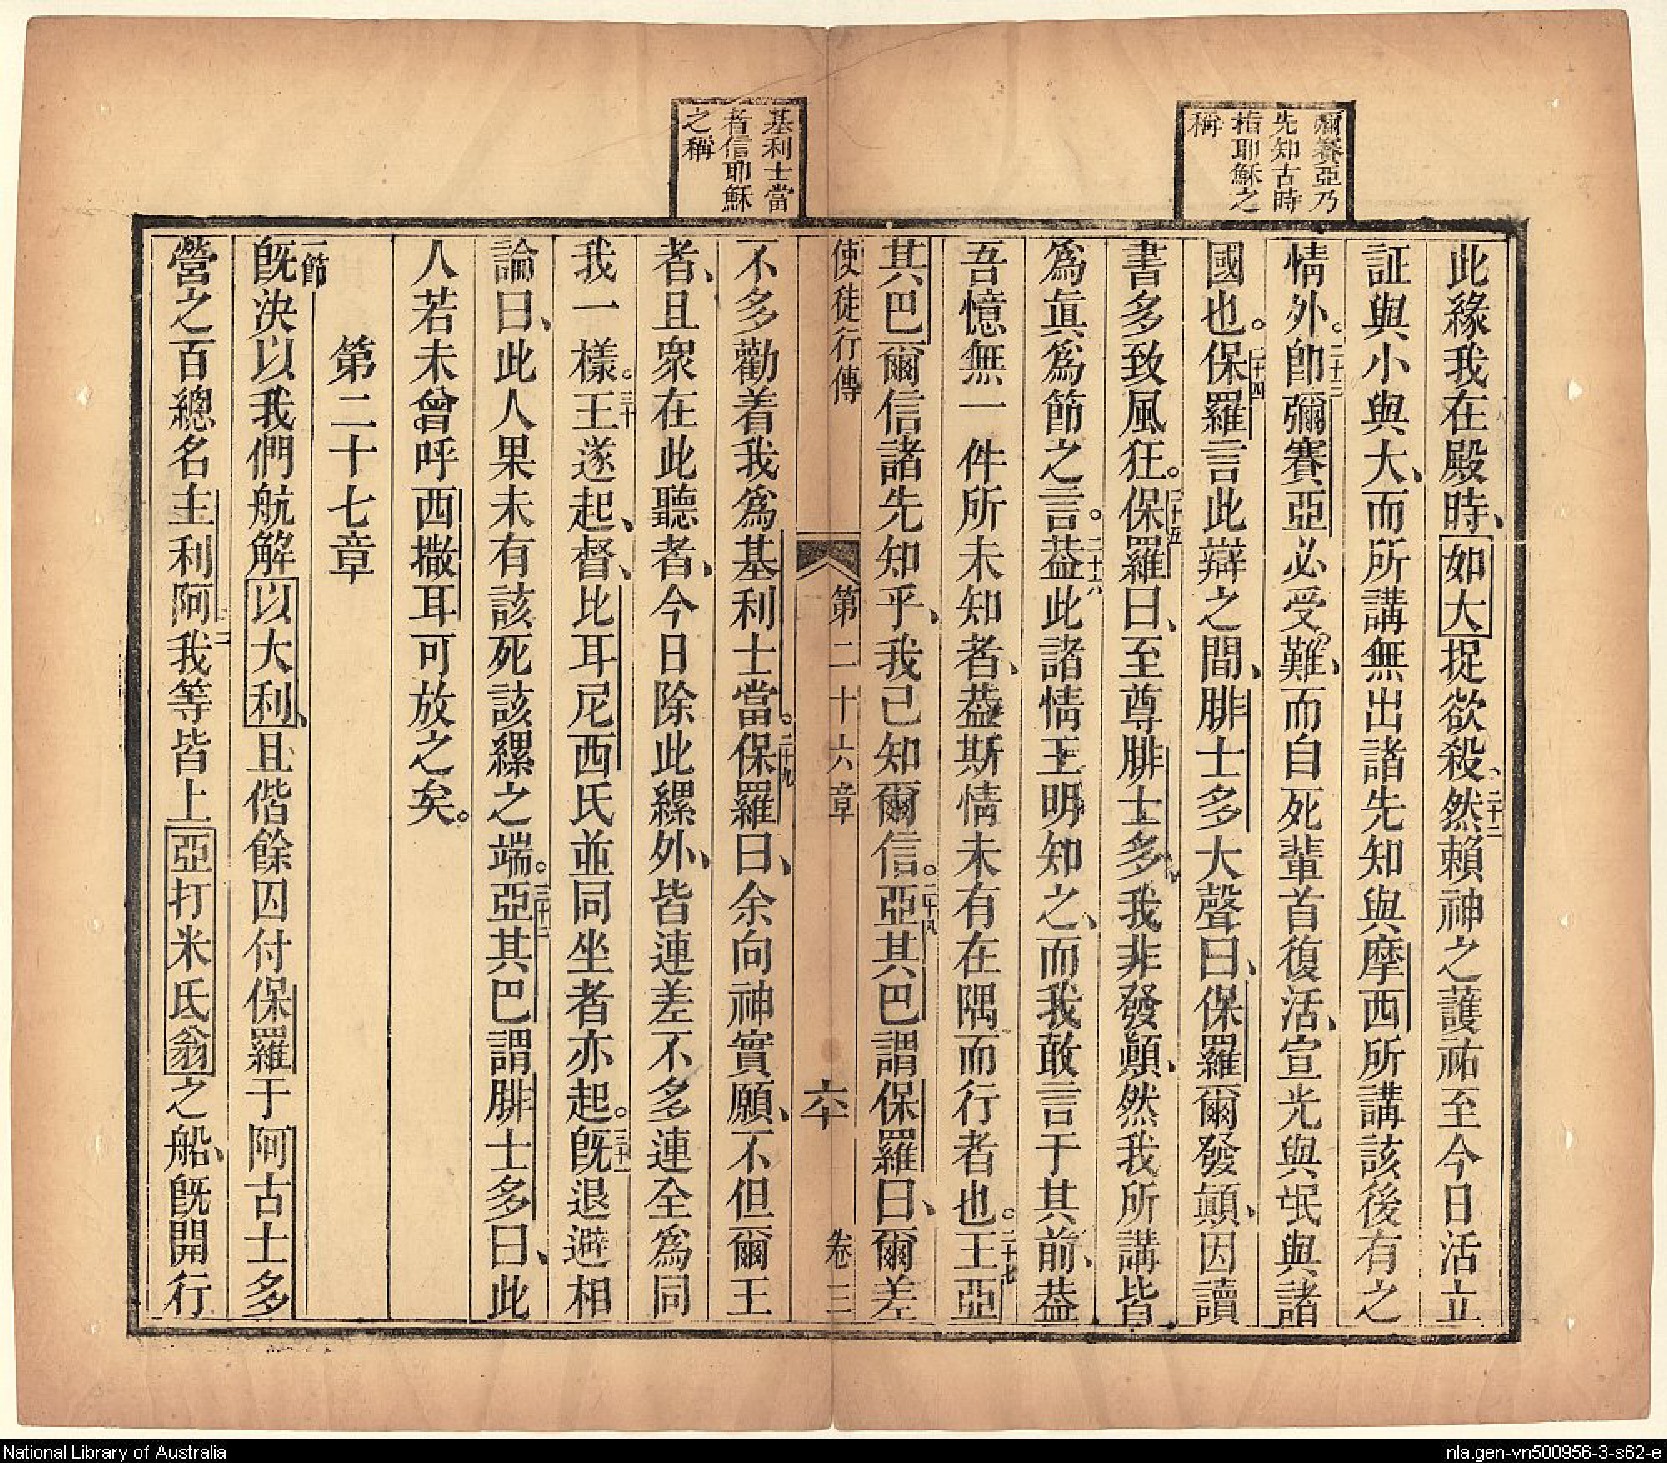 彌賽亞乃
先知古時
指耶穌之
稱
此緣我在殿時、如大捉欲殺、二十二然賴神之護祐至今日活立
証與小與大、而所講無出諸先知與摩西所講該後有之
情外。二十三卽彌賽亞必受難、而自死輩首復活、宣光與氓與諸
國也。二十四保羅言此辯之間、腓士多大聲曰、保羅爾發顛、因讀
書多致風狂。二十五保羅曰、至尊腓士多、我非發顛、然我所講皆
爲眞爲節之言。二十六葢此諸情王明知之、而我敢言于其前、葢
吾憶無一件所未知者、葢斯情未有在隅而行者也。二十七王亞
其巴爾信諸先知乎、我已知爾信。二十八亞其巴謂保羅曰、爾差
使徒行傳 第二十六章 六十 卷三
基利士當
者信耶穌
之稱
不多勸着我爲基利士當。二十九保羅曰、余向神實願、不但爾王
者、且衆在此聽者、今日除此縲外、皆連差不多連全爲同
我一樣。三十王遂起、督、比耳尼西氏並同坐者亦起。三十一旣退避相
論曰、此人果未有該死該縲之端。三十二亞其巴謂腓士多曰、此
人若未曾呼西撒耳可放之矣。
第二十七章
一節旣決以我們航解以大利、且偕餘囚付保羅于阿古士多
營之百總名主利阿二我等皆上亞打米氐翁之船、旣開行